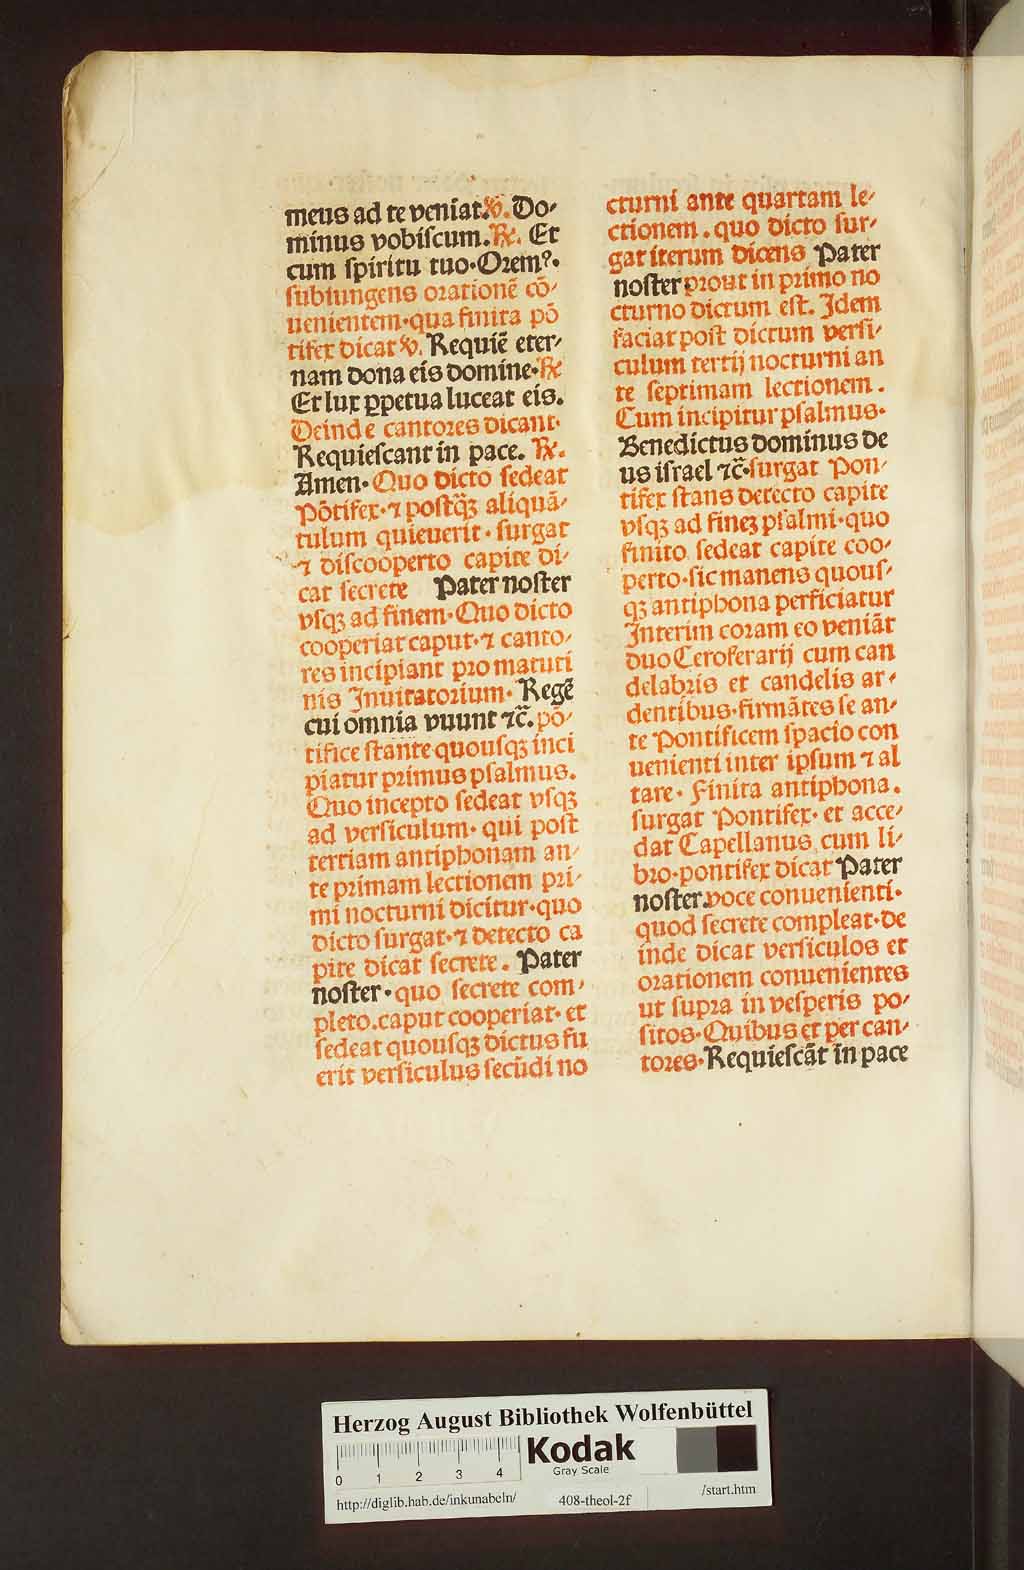 meus ad te veniat. ℣. Do-
minus vobiscum. ℟. Et
cum spiritu tuo. Oremꝰ.
subiungens orationē cō-
uenientem. qua finita pō
tifex dicat ℣. Requiē eter-
nam dona eis domine. ℟
Et lux ꝑpetua luceat eis.
Deinde cantores dicant.
Requiescant in pace. ℟.
Amen. Quo dicto sedeat
Pōtifex. ⁊ postꝙ̄ aliquā-
tulum quieuerit. surgat
⁊ discooperto capite di-
cat secrete Pater noster
vsqꝫ ad finem. Quo dicto
cooperiat caput. ⁊ canto-
res incipiant pro matuti
nis Inuitatorium. Regē
cui omnia viuunt ⁊c̄. pō-
tifice stante quousqꝫ inci
piatur primus psalmus.
Quo incepto sedeat vsqꝫ
ad versiculum. qui post
tertiam antiphonam an-
te primam lectionem pri-
mi nocturni dicitur. quo
dicto surgat. ⁊ detecto ca
pite dicat secrete. Pater
noster. quo secrete com-
pleto. caput cooperiat. et
sedeat quousqꝫ dictus fu
erit versiculus secūdi no
cturni ante quartam le-
ctionem. quo dicto sur-
gat iterum dicens Pater
noster prout in primo no
cturno dictum est. Idem
faciat post dictum versi-
culum tertij nocturni an
te septimam lectionem.
Cum incipitur psalmus.
Benedictus dominus de
us israel ⁊c̄. surgat Pon-
tifex stans detecto capite
vsqꝫ ad fineꝫ psalmi. quo
finito sedeat capite coo-
perto. sic manens quous-
qꝫ antiphona perficiatur
Interim coram eo veniāt
duo Ceroferarij cum can
delabris et candelis ar-
dentibus. firmātes se an-
te Pontificem spacio con
uenienti inter ipsum ⁊ al
tare. Finita antiphona.
surgat Pontifex. et acce-
dat Capellanus cum li-
bro. pontifex dicat Pater
noster. voce conuenienti.
quod secrete compleat. de
inde dicat versiculos et
orationem conuenientes
ut supra in vesperis po-
sitos. Quibus et per can-
tores. Requiescāt in pace
Herzog August Bibliothek Wolfenbüttel
0 1 2 3 4
Kodak
Gray Scale
http://diglib.hab.de/inkunabeln/ 408-theol-2f /start.htm